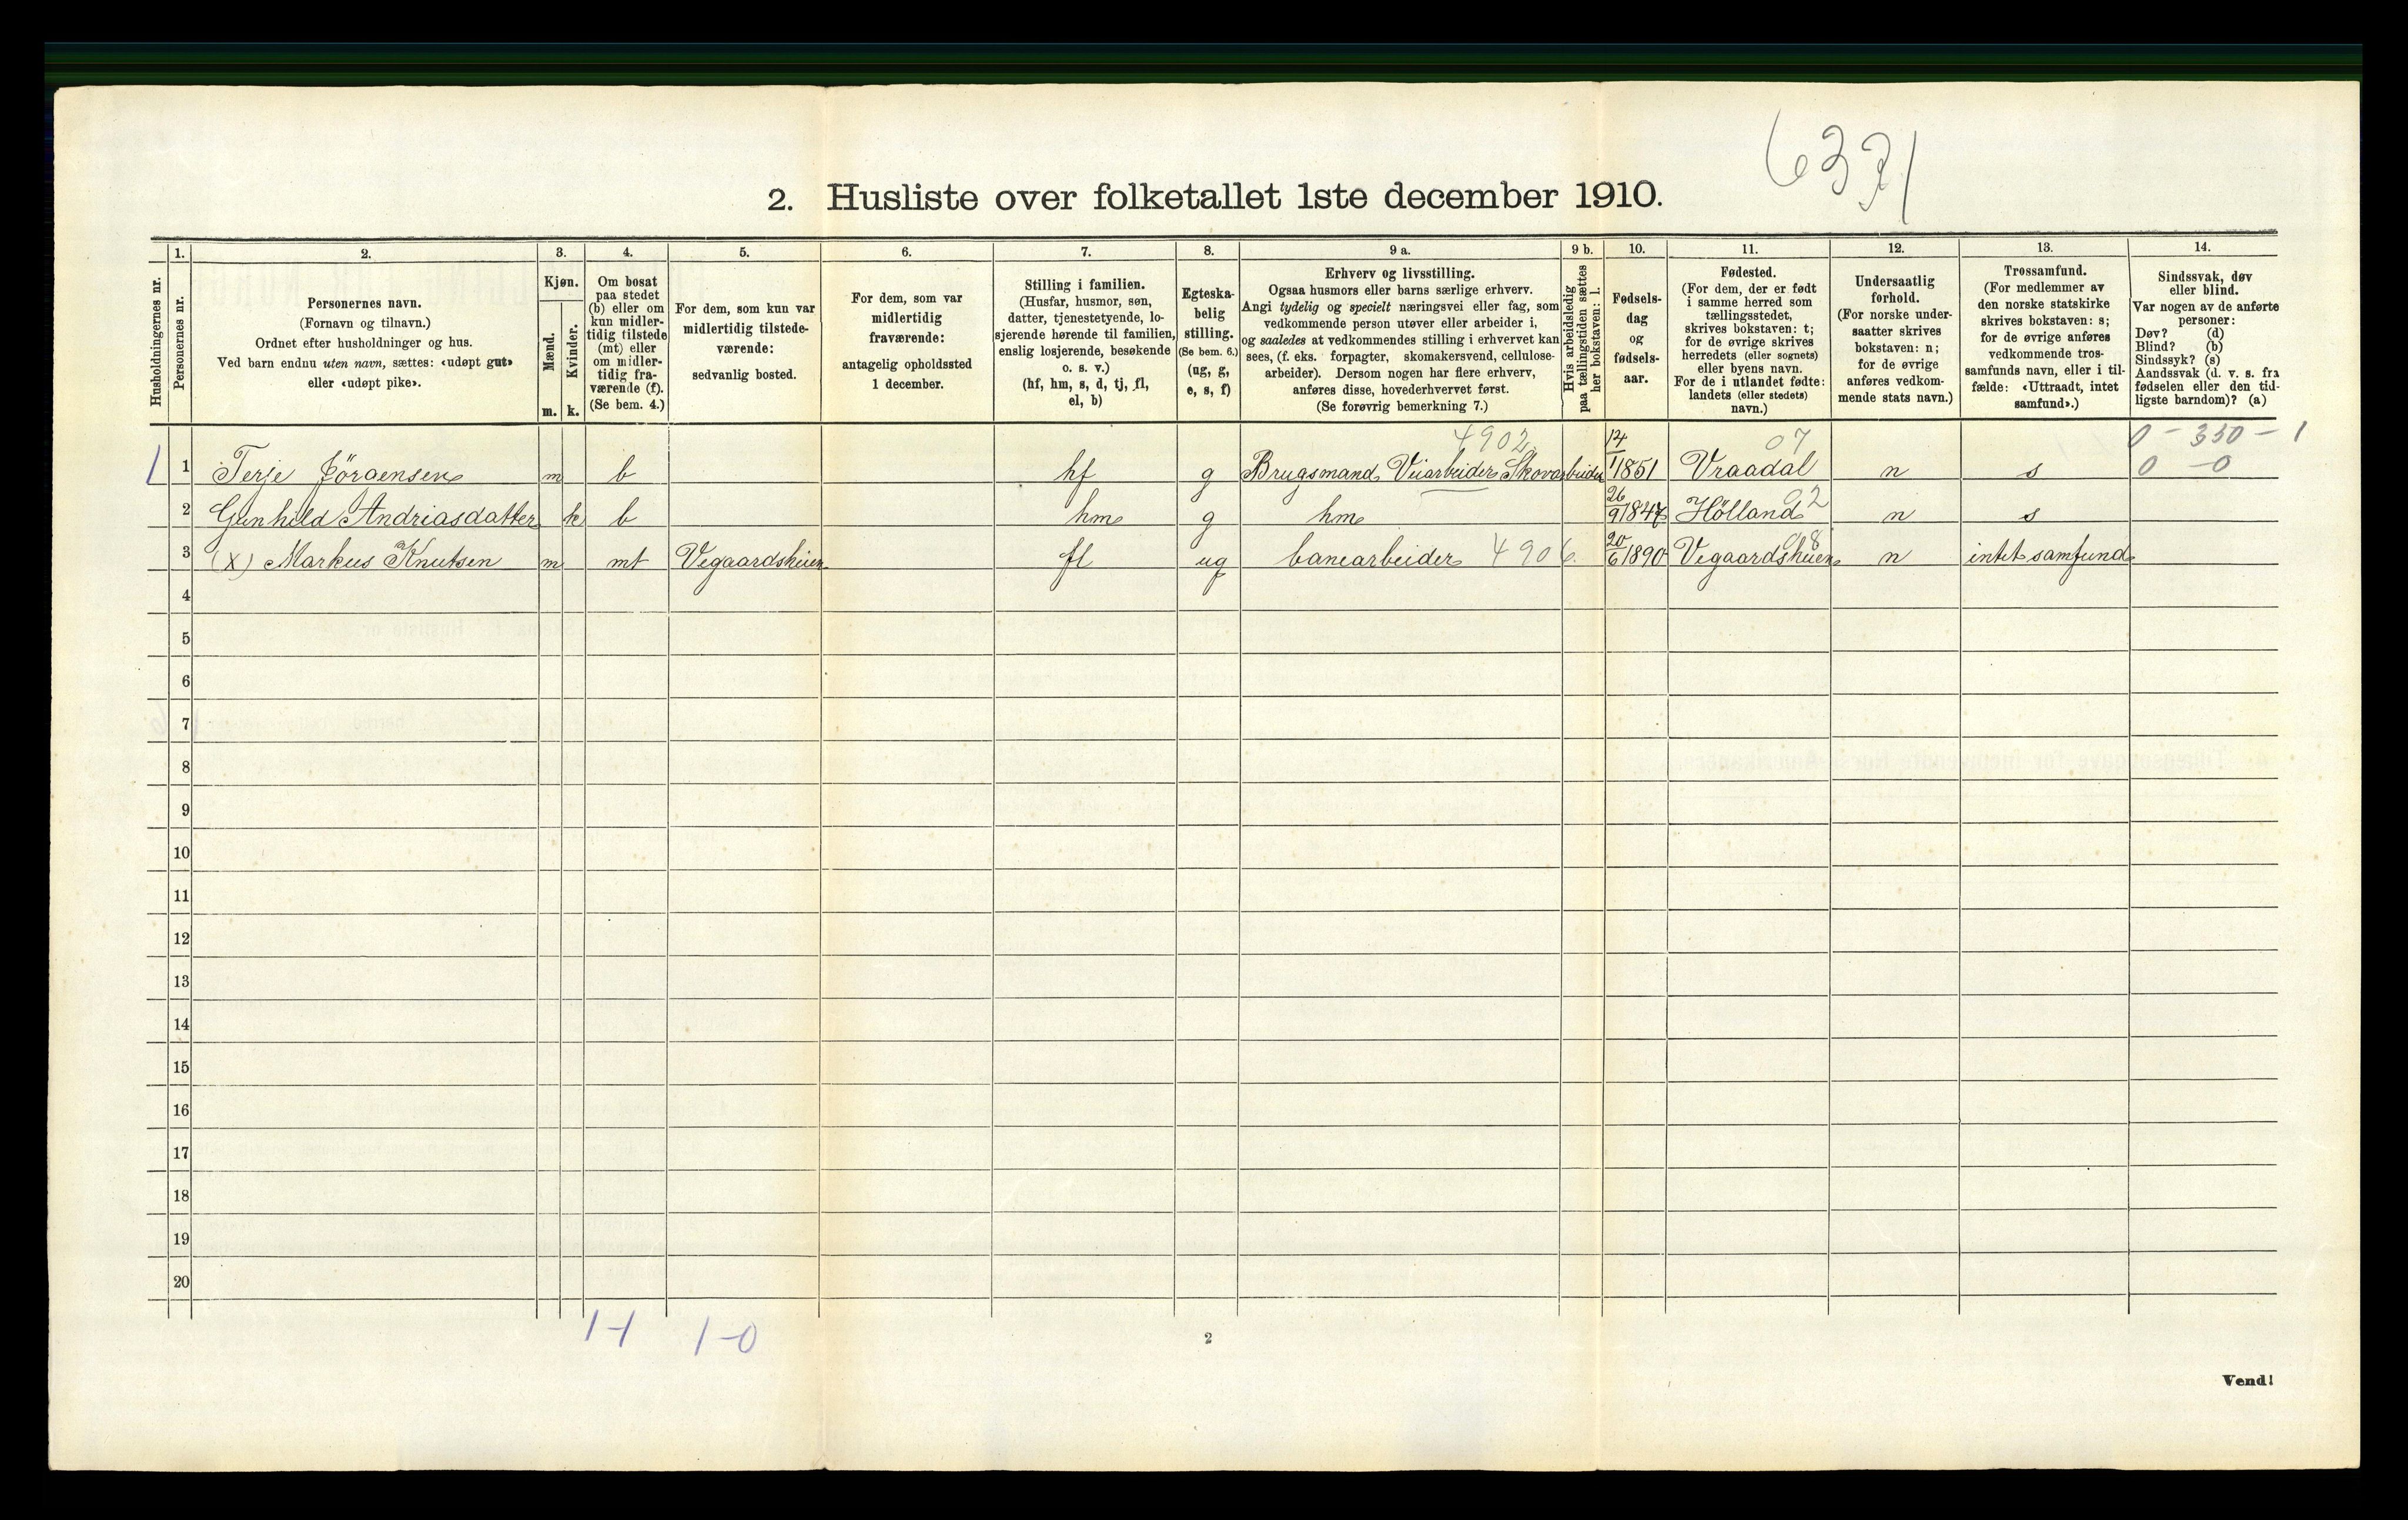 6331
2. Husliste over folketallet 1ste december 1910.
Husholdningernes nr.
1.
Personernes nr.
2.
Personernes navn.
(Fornavn og tilnavn.)
Ordnet efter husholdninger og hus.
Ved barn endnu uten navn, sættes: «udøpt gut»
eller «udøpt pike».
3.
Kjøn.
Mænd.
Kvinder.
m. k.
4.
Om bosat
paa stedet
(b) eller om
kun midler-
tidig tilstede
(mt) eller
om midler-
tidig fra-
værende (f).
(Se bem. 4.)
5.
For dem, som kun var
midlertidig tilstede-
værende:
sedvanlig bosted.
6.
For dem, som var
midlertidig
fraværende:
antagelig opholdssted
1 december.
7.
Stilling i familien.
(Husfar, husmor, søn,
datter, tjenestetyende, lo-
sjerende hørende til familien,
enslig losjerende, besøkende
o. s. v.)
(hf, hm, s, d, tj, fl,
el, b)
8.
Egteska-
belig
stilling.
(Se bem. 6.)
(ug, g,
e, s, f)
9 a.
Erhverv og livsstilling.
Ogsaa husmors eller barns særlige erhverv.
Angi tydelig og specielt næringsvei eller fag, som
vedkommende person utøver eller arbeider i,
og saaledes at vedkommendes stilling i erhvervet kan
sees, (f. eks. forpagter, skomakersvend, cellulose-
arbeider). Dersom nogen har flere erhverv,
anføres disse, hovederhvervet først.
(Se forøvrig bemerkning 7.)
9 b.
Hvis arbeidsledig
paa tællingstiden sættes
her bokstaven: l.
10.
Fødsels-
dag
og
fødsels-
aar.
11.
Fødested.
(For dem, der er født
i samme herred som
tællingsstedet,
skrives bokstaven: t;
for de øvrige skrives
herredets (eller sognets)
eller byens navn.
For de i utlandet fødte:
landets (eller stedets)
navn.)
12.
Undersaatlig
forhold.
(For norske under-
saatter skrives
bokstaven: n;
for de øvrige
anføres vedkom-
mende stats navn.)
13.
Trossamfund.
(For medlemmer av
den norske statskirke
skrives bokstaven: s;
for de øvrige anføres
vedkommende tros-
samfunds navn, eller i til-
fælde: «Uttraadt, intet
samfund».)
14.
Sindssvak, døv
eller blind.
Var nogen av de anførte
personer:
Døv? (d)
Blind? (b)
Sindssyk? (s)
Aandssvak (d. v. s. fra
fødselen eller den tid-
ligste barndom)? (a)
4902 07 0 - 330 - 1
1 1 Terje Jörgensen m b hf g Brugsmand, Veiarbeider Skovarbeider 14/1 1851 Vraadal n s 0 - 0
2 Gunhild Andriasdatter k b hm g hm 26/9 1847 Hölland 02 n s
3 (X) Markus Knutsen m mt Vegaardsheien fl ug banearbeider 4906. 20/6 1890 Vegaardsheien 08 n intet samfund
4
5
6
7
8
9
10
11
12
13
14
15
16
17
18
19
20
1-1 1-0
2
Vend!